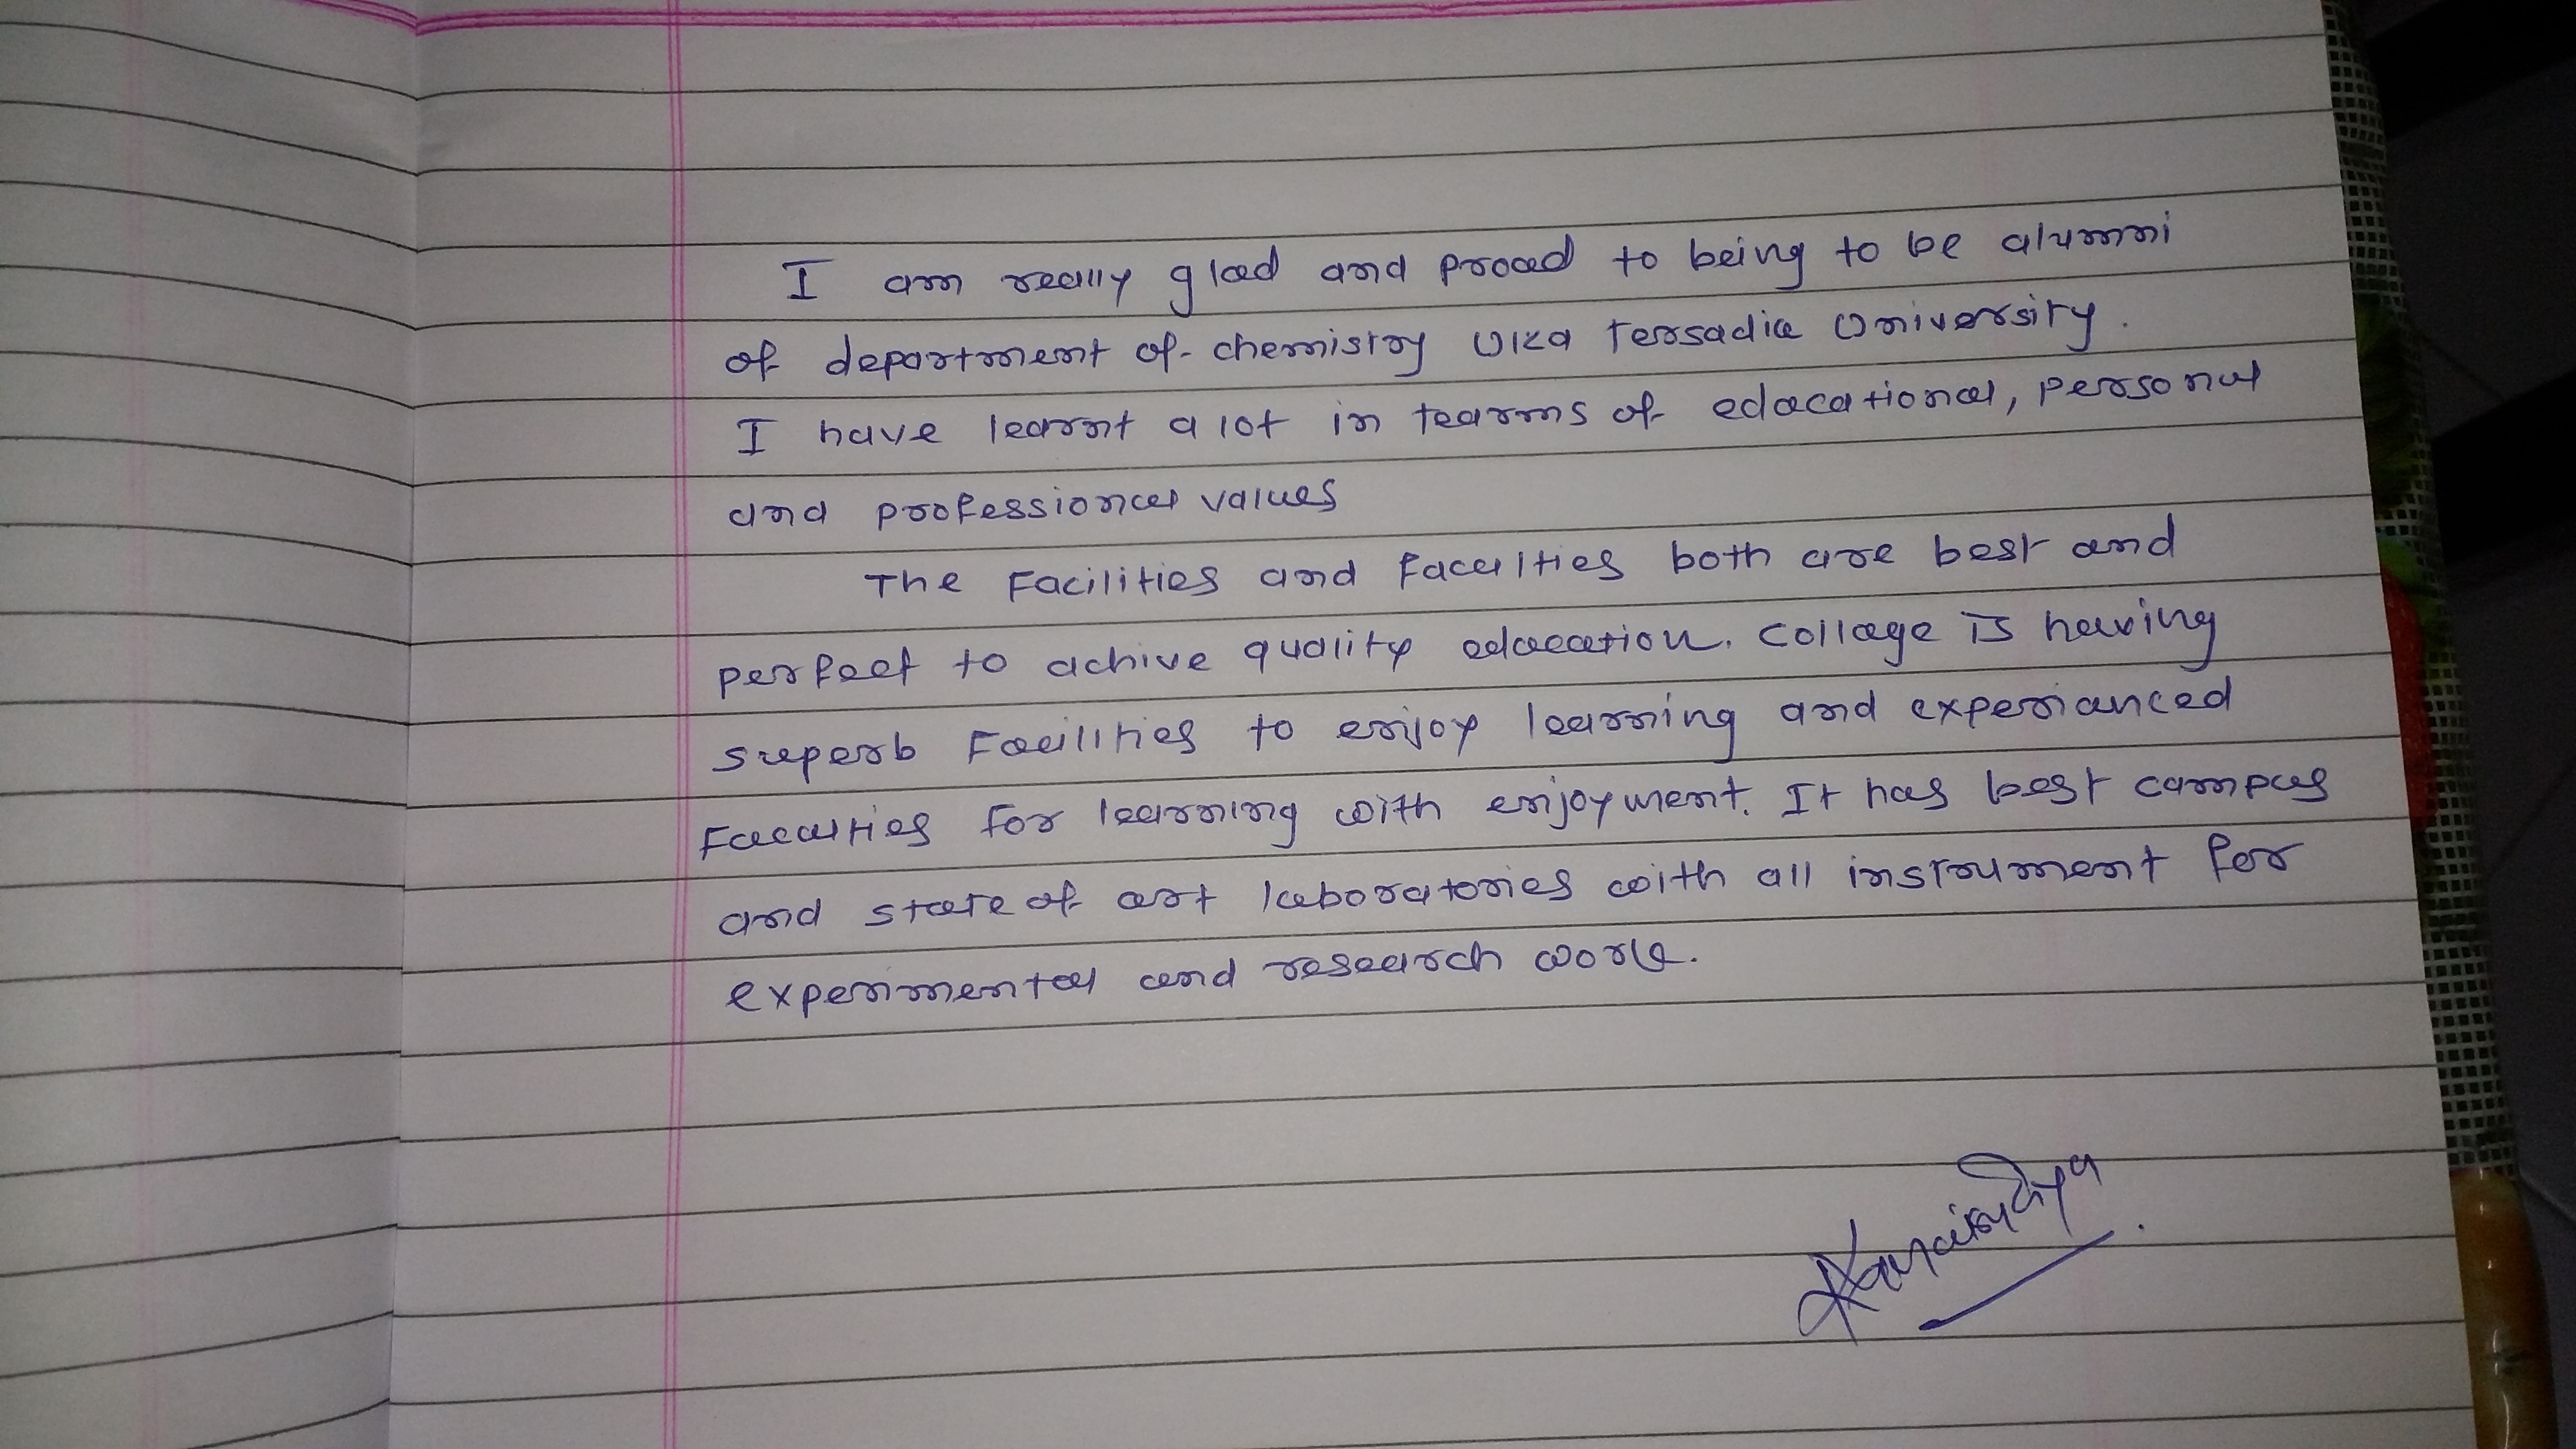 I am really glad and proud to being to be alumni
of department of chemistry Uka Tarsadia University.
I have learnt a lot in tearms of educational, personal
and professional values
The Facilities and faculties both are best and
perfect to achive quality education. Collage is having
superb Facilities to enjoy learning and experianced
Faculties for learning with enjoyment. It has best campus
and state of art laboratories with all instrument for
experimental and research work.